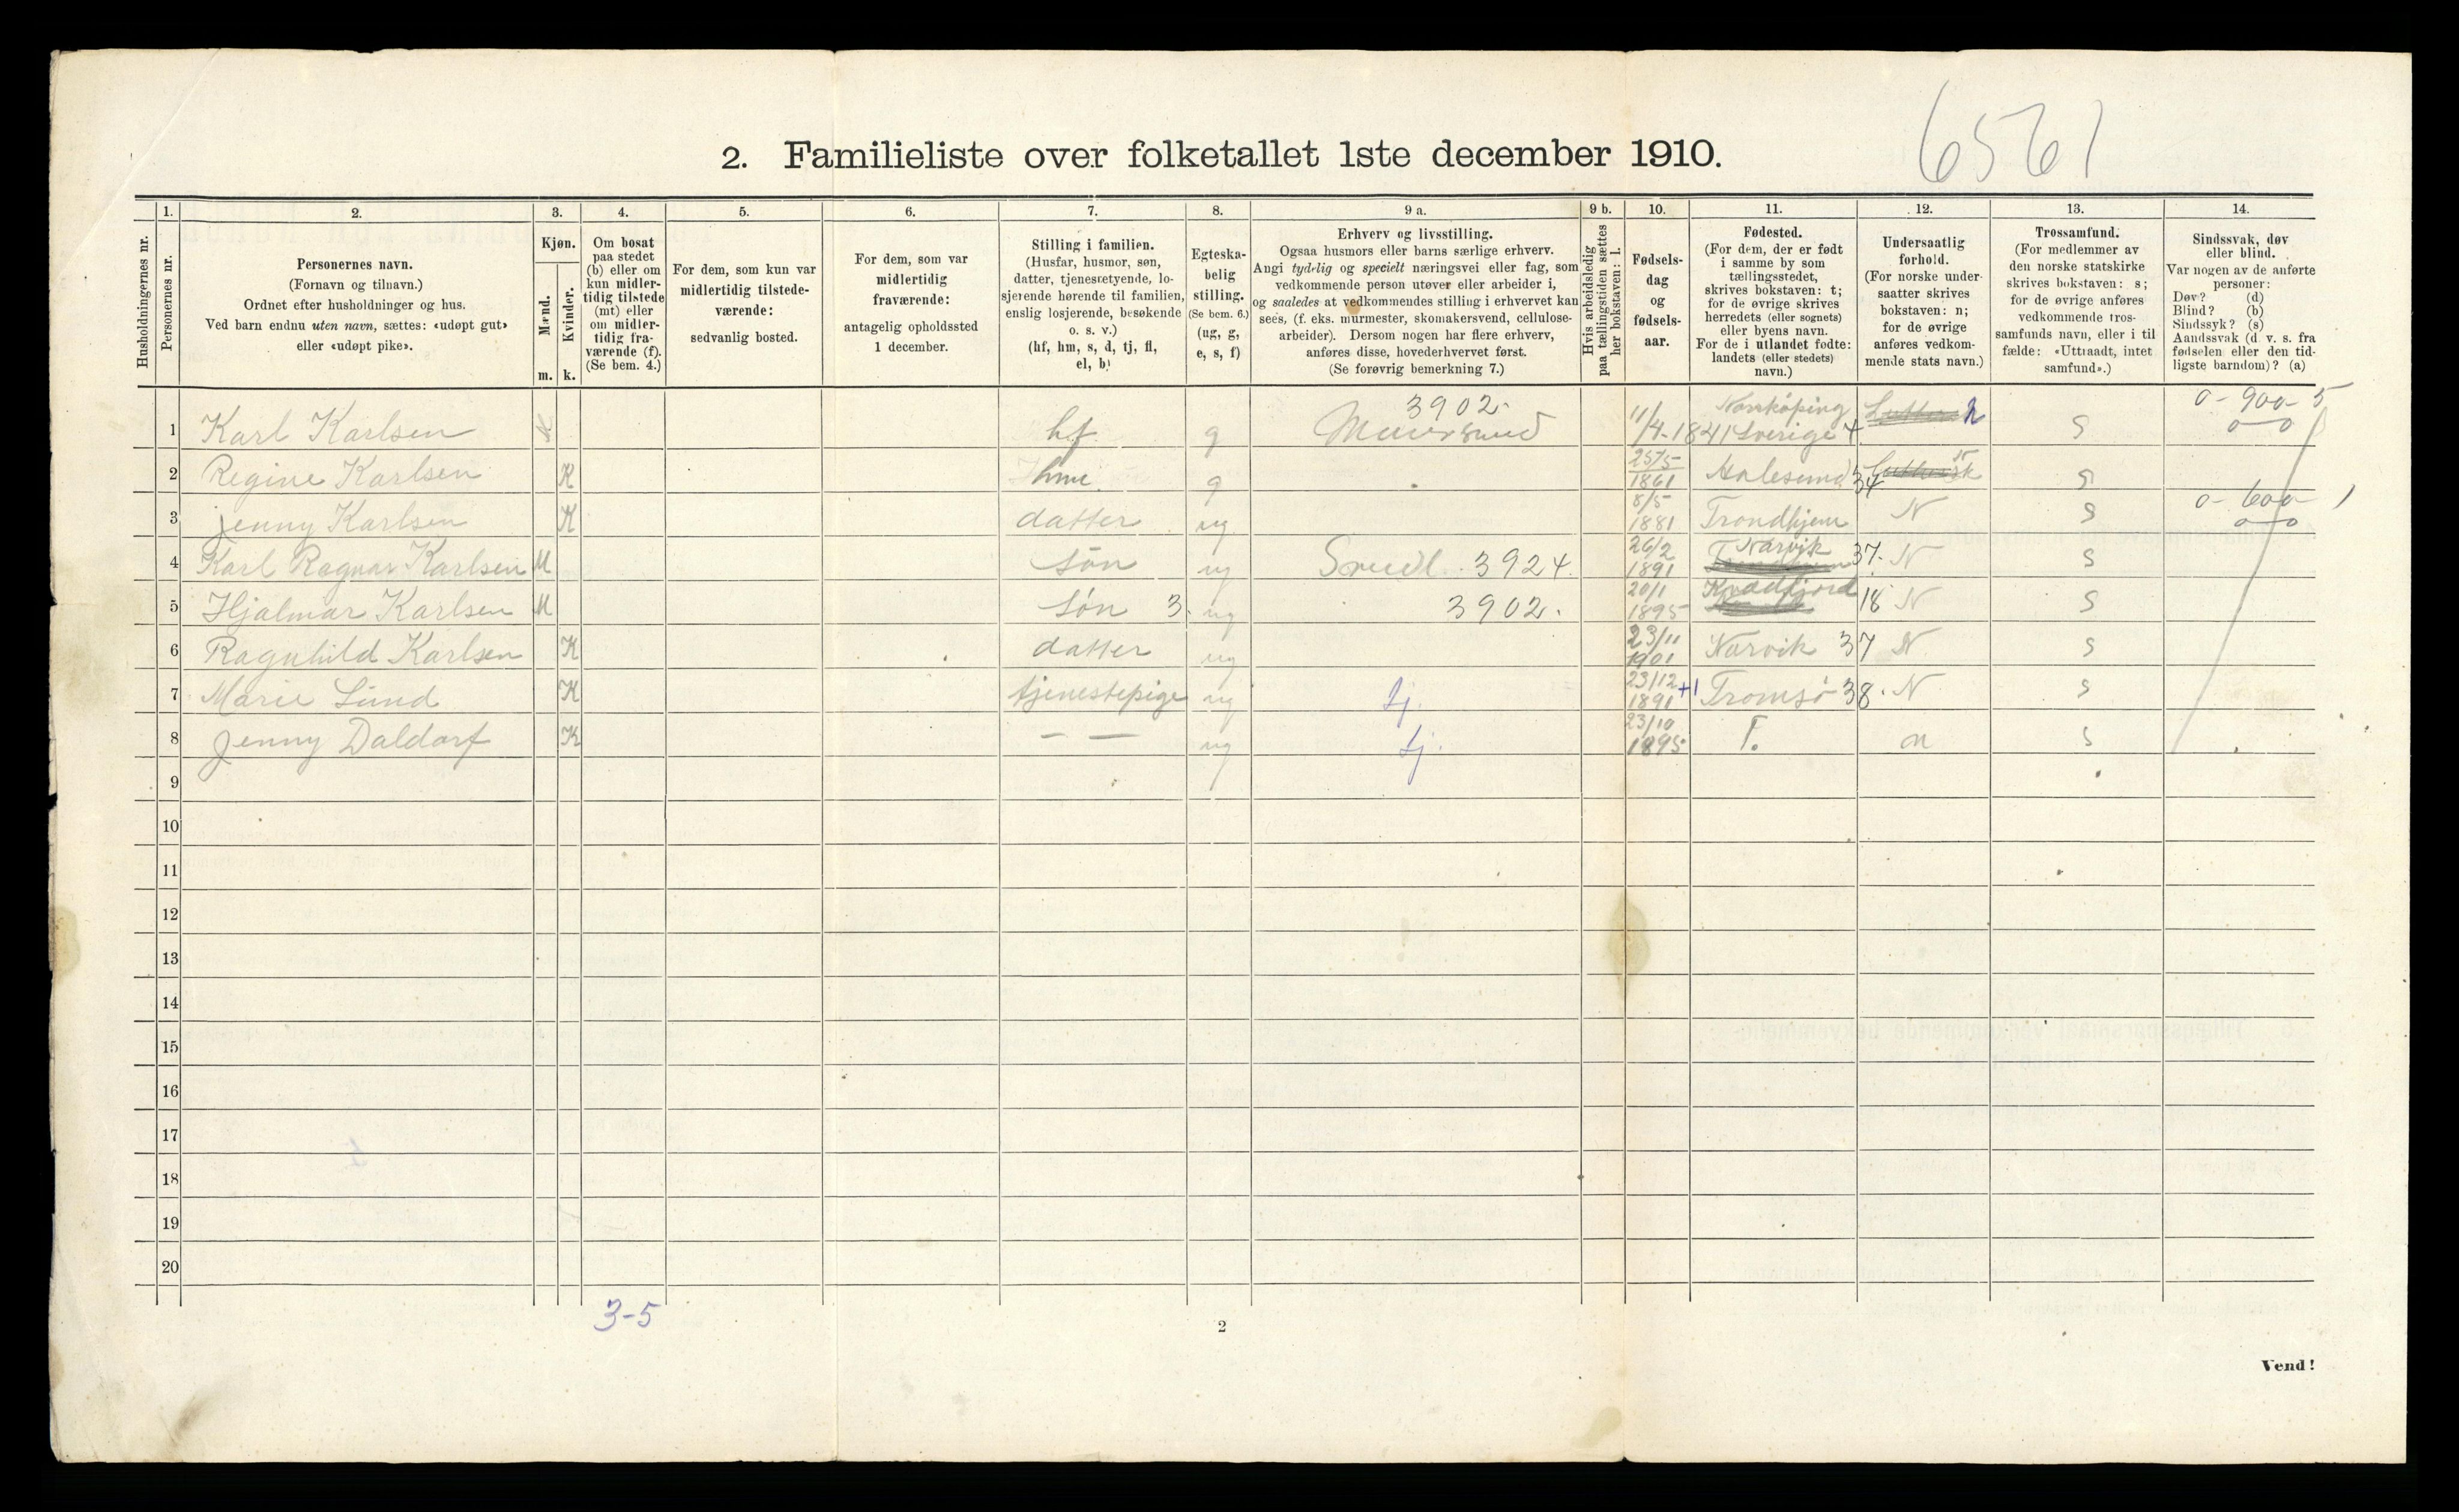 6561
2. Familieliste over folketallet 1ste december 1910.
Husholdningernes nr.
1. Personernes nr.
2. Personernes navn.
(Fornavn og tilnavn.)
Ordnet efter husholdninger og hus.
Ved barn endnu uten navn, sættes: «udøpt gut»
eller «udøpt pike».
3. Kjøn.
Mænd. m.
Kvinder. k.
4. Om bosat
paa stedet
(b) eller om
kun midler-
tidig tilstede
(mt) eller
om midler-
tidig fra-
værende (f).
(Se bem. 4.)
5. For dem, som kun var
midlertidig tilstede-
værende:
sedvanlig bosted.
6. For dem, som var
midlertidig
fraværende:
antagelig opholdssted
1 december.
7. Stilling i familien.
(Husfar, husmor, søn,
datter, tjenestetyende, lo-
sjerende hørende til familien,
enslig losjerende, besøkende
o. s. v.)
(hf, hm, s, d, tj, fl,
el, b)
8. Egteska-
belig
stilling.
(Se bem. 6.)
(ug, g,
e, s, f)
9 a. Erhverv og livsstilling.
Ogsaa husmors eller barns særlige erhverv.
Angi tydelig og specielt næringsvei eller fag, som
vedkommende person utøver eller arbeider i,
og saaledes at vedkommendes stilling i erhvervet kan
sees, (f. eks. murmester, skomakersvend, cellulose-
arbeider). Dersom nogen har flere erhverv,
anføres disse, hovederhvervet først.
(Se forøvrig bemerkning 7.)
9 b. Hvis arbeidsledig
paa tællingstiden sættes
her bokstaven: l.
10. Fødsels-
dag
og
fødsels-
aar.
11. Fødested.
(For dem, der er født
i samme by som
tællingsstedet,
skrives bokstaven: t;
for de øvrige skrives
herredets (eller sognets)
eller byens navn.
For de i utlandet fødte:
landets (eller stedets)
navn.)
12. Undersaatlig
forhold.
(For norske under-
saatter skrives
bokstaven: n;
for de øvrige
anføres vedkom-
mende stats navn.)
13. Trossamfund.
(For medlemmer av
den norske statskirke
skrives bokstaven: s;
for de øvrige anføres
vedkommende tros-
samfunds navn, eller i til
fælde: «Uttraadt, intet
samfund».)
14. Sindssvak, døv
eller blind.
Var nogen av de anførte
personer:
Døv? (d)
Blind? (b)
Sindssyk? (s)
Aandssvak (d. v. s. fra
fødselen eller den tid-
ligste barndom)? (a)
1 Karl Karlsen hf g 3902 11/4-1841 Norrköping Sverige 4 n S 0-900-5
2 Regine Karlsen K hm g 25/5 1861 Aalesund 34 S
3 Jenny Karlsen K datter ug 8/5 1881 Trondhjem N S 0-600- 1
4 Karl Ragnar Karlsen M søn ug 3924. 26/2 1891 Narvik 37. N S
5 Hjalmar Karlsen M søn 3. ug 3902. 20/1 1895 Kvædfjord 18 N S
6 Ragnhild Karlsen K datter ug 23/11 1901 Narvik 37 N S
7 Marie Lund K tjenestepige ug tj. 23/12 1891 +1 Tromsø 38. N S
8 Jenny Daldorf K — — ug tj. 23/10 1895 T. n S
9
10
11
12
13
14
15
16
17
18
19
20
3-5
2
Vend!